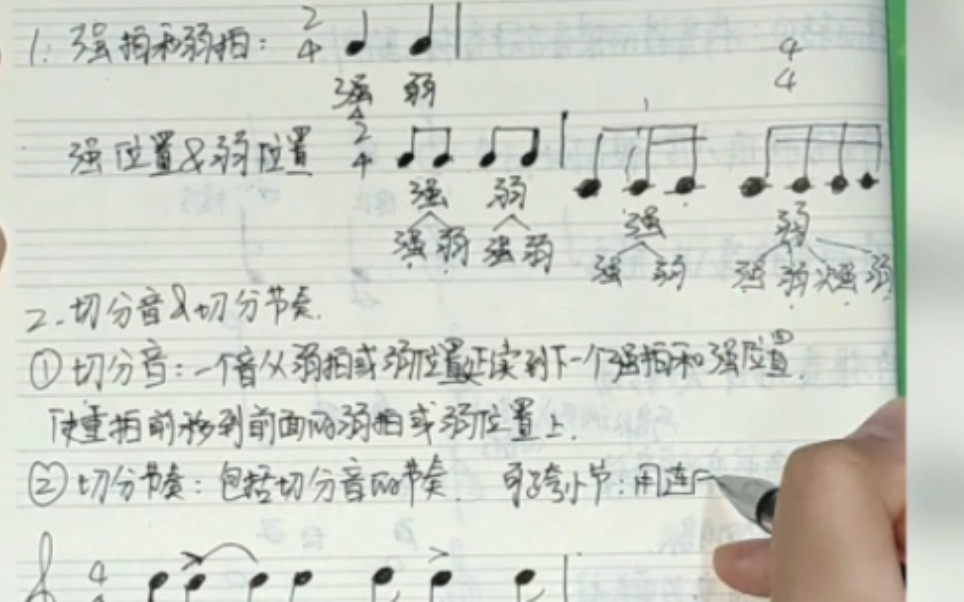 1. 强拍和弱拍: 2 4
4 4
强 弱
强位置&弱位置 2 4
强 弱 强 弱
强 弱 强 弱 强 弱 强 弱 次强 弱
2. 切分音&切分节奏.
① 切分音: 一个音从弱拍或弱位置延续到下一个强拍和强位置.
使重拍前移到前面的弱拍或弱位置上.
② 切分节奏: 包括切分音的节奏. 可跨小节: 用连
4